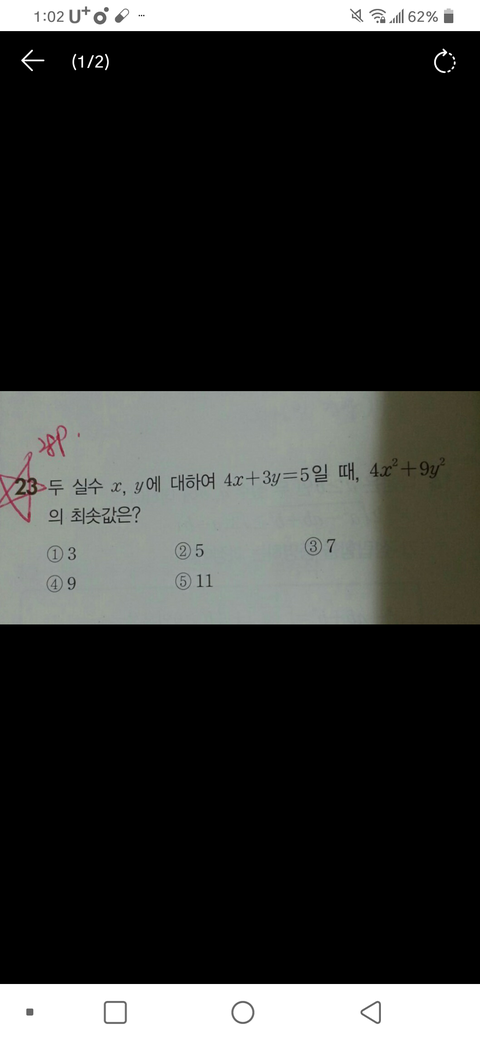 1:02 U+ 62%
(1/2)
23 두 실수 x, y에 대하여 4x+3y=5일 때, 4x²+9y²
의 최솟값은?
① 3 ② 5 ③ 7
④ 9 ⑤ 11